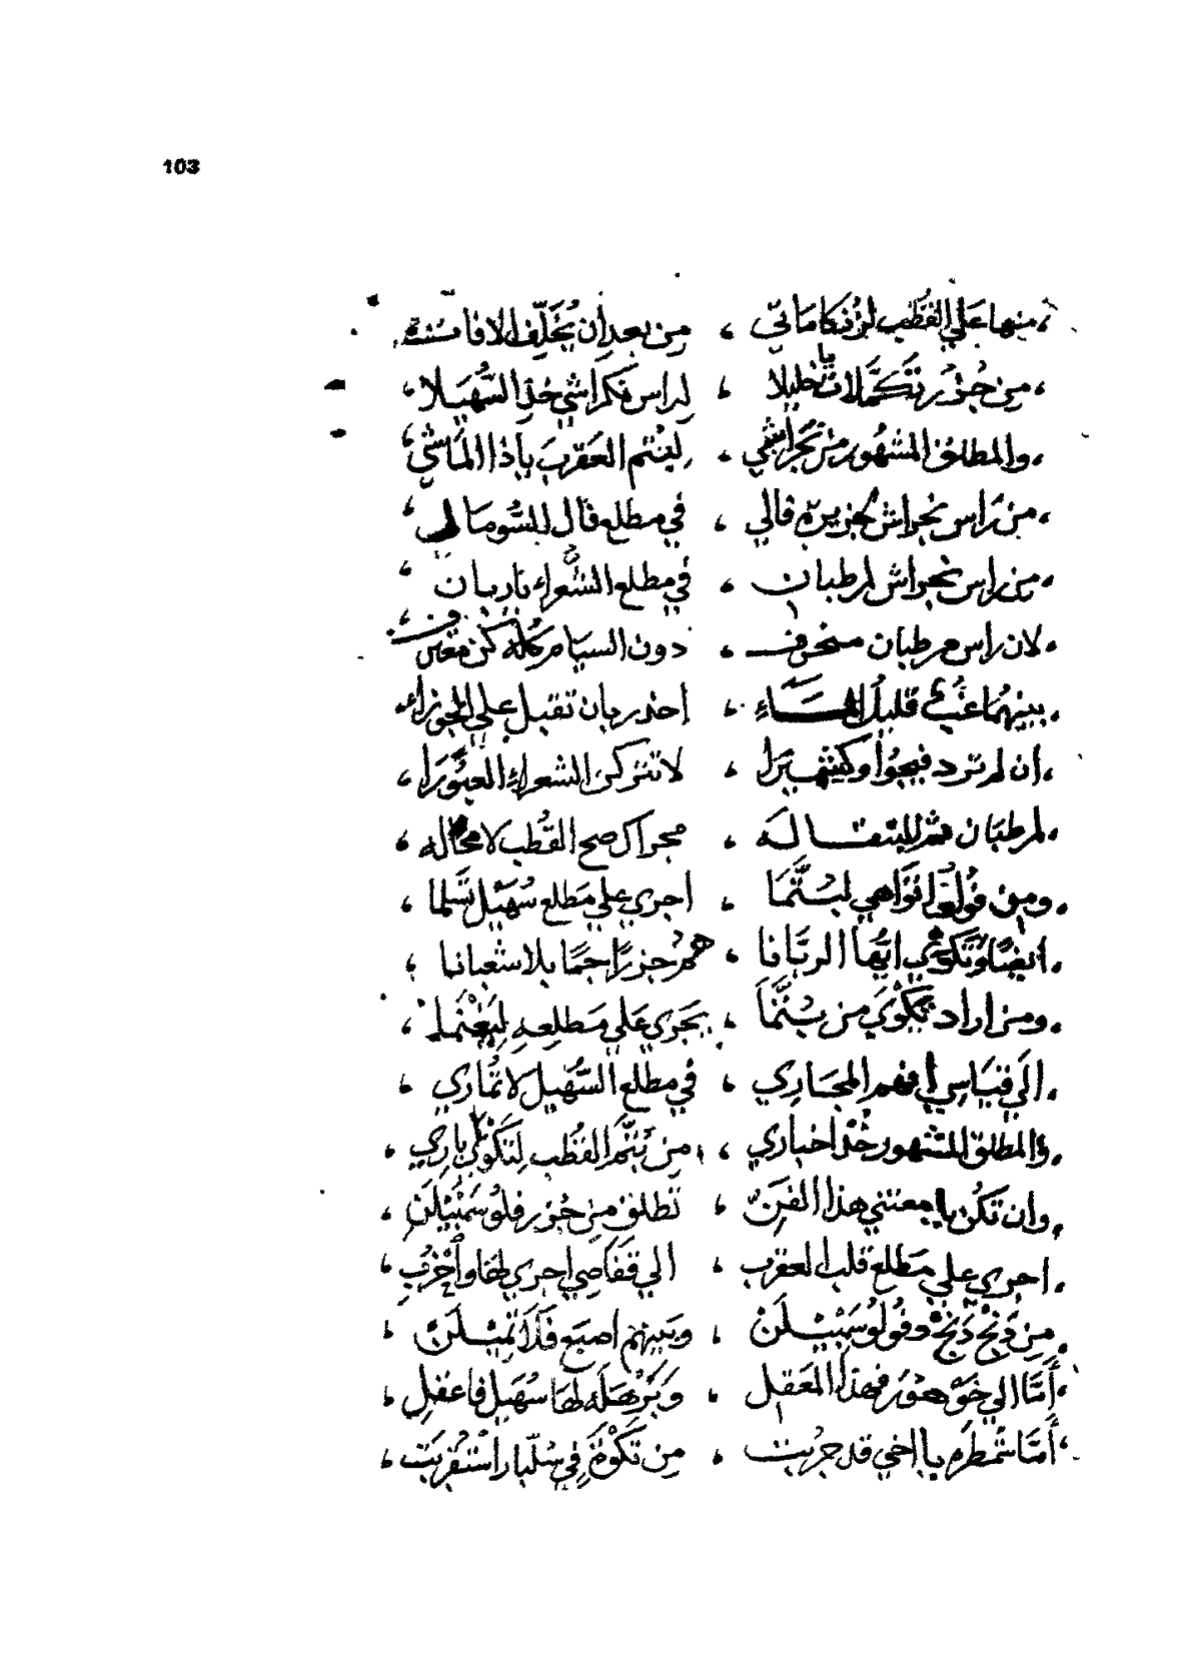 103
منها على القطب لزنكاماتي ، من بعد ان يخلف الافا
من جزر تكملات خليلا ، لراس نكراشي خذ السهيلا
والمطلق المشهور من نجراشي ، ليغنتم العقرب يا ذا الماشي
من راس نجواش لجزيرة قالي ، في مطلع قال للسومالي
من راس نجواش لمرطبان ، في مطلع الشعراء يا ربان
لان راس مرطبان منحرف ، دون السيام كله كن معترف
بينهما غب قليل الماء ، احذر بان تقبل علي الجوزاء
ان لم ترد فيجوا وكيثميرا ، لا تتركن الشعراء العبورا
لمرطبان ثم للبتقاله ، مجراك صح القطب لا محاله
ومن فولو انواهي لبتما ، اجري علي مطلع سهيل تسلما
ايضا وتكوي ايها الربانا ، هم جزرا جما بلا شعبانا
ومن اراد تكوي من بتنما ، يجري علي مطلعه ليغنما
الي قياس افهم المجاري ، في مطلع السهيل لا تماري
والمطلق المشهور خذ اخباري ، من بتم القطب لتكوي باري
وان تكن يا معتني هذا الفن ، تطلق من جزر فلو سمبيلن
اجري علي مطلع قلب العقرب ، الي قفاصي اجري لها واخرب
من دنج دنج وفولو سمبيلن ، وبينهم اصبع فلا تميلن
اما الي خو هور فهذا المعقل ، وبرهله لها سهيل فاعقل
اما شمطره يا اخي قد جربت ، من تكوة في سلبار استقربت